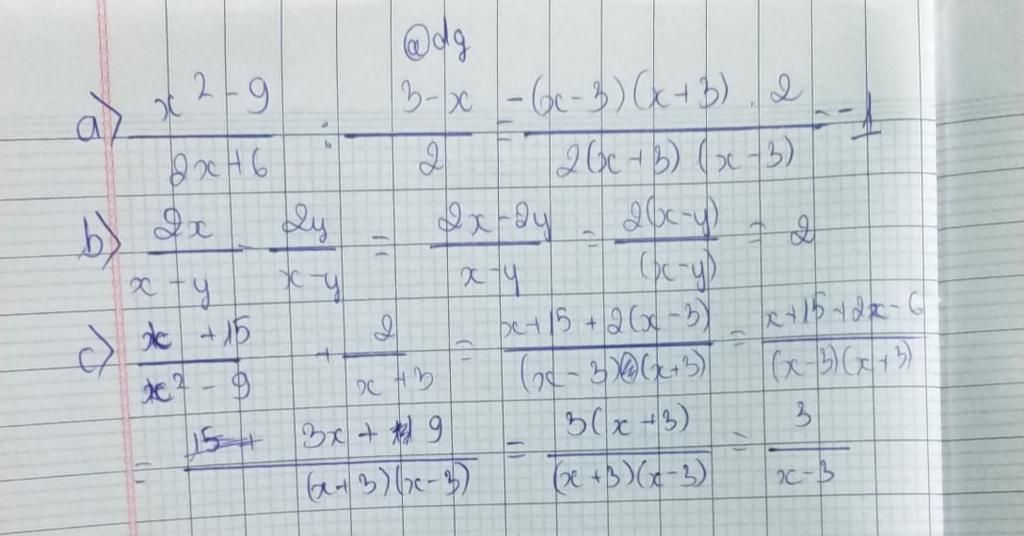 @dg
a) \frac{x^2-9}{2x+6} : \frac{3-x}{2} = \frac{-(x-3)(x+3).2}{2(x+3)(x-3)} = -1
b) \frac{2x}{x-y} - \frac{2y}{x-y} = \frac{2x-2y}{x-y} = \frac{2(x-y)}{(x-y)} = 2
c) \frac{x+15}{x^2-9} + \frac{2}{x+3} = \frac{x+15+2(x-3)}{(x-3)(x+3)} = \frac{x+15+2x-6}{(x-3)(x+3)}
= \frac{3x+9}{(x+3)(x-3)} = \frac{3(x+3)}{(x+3)(x-3)} = \frac{3}{x-3}